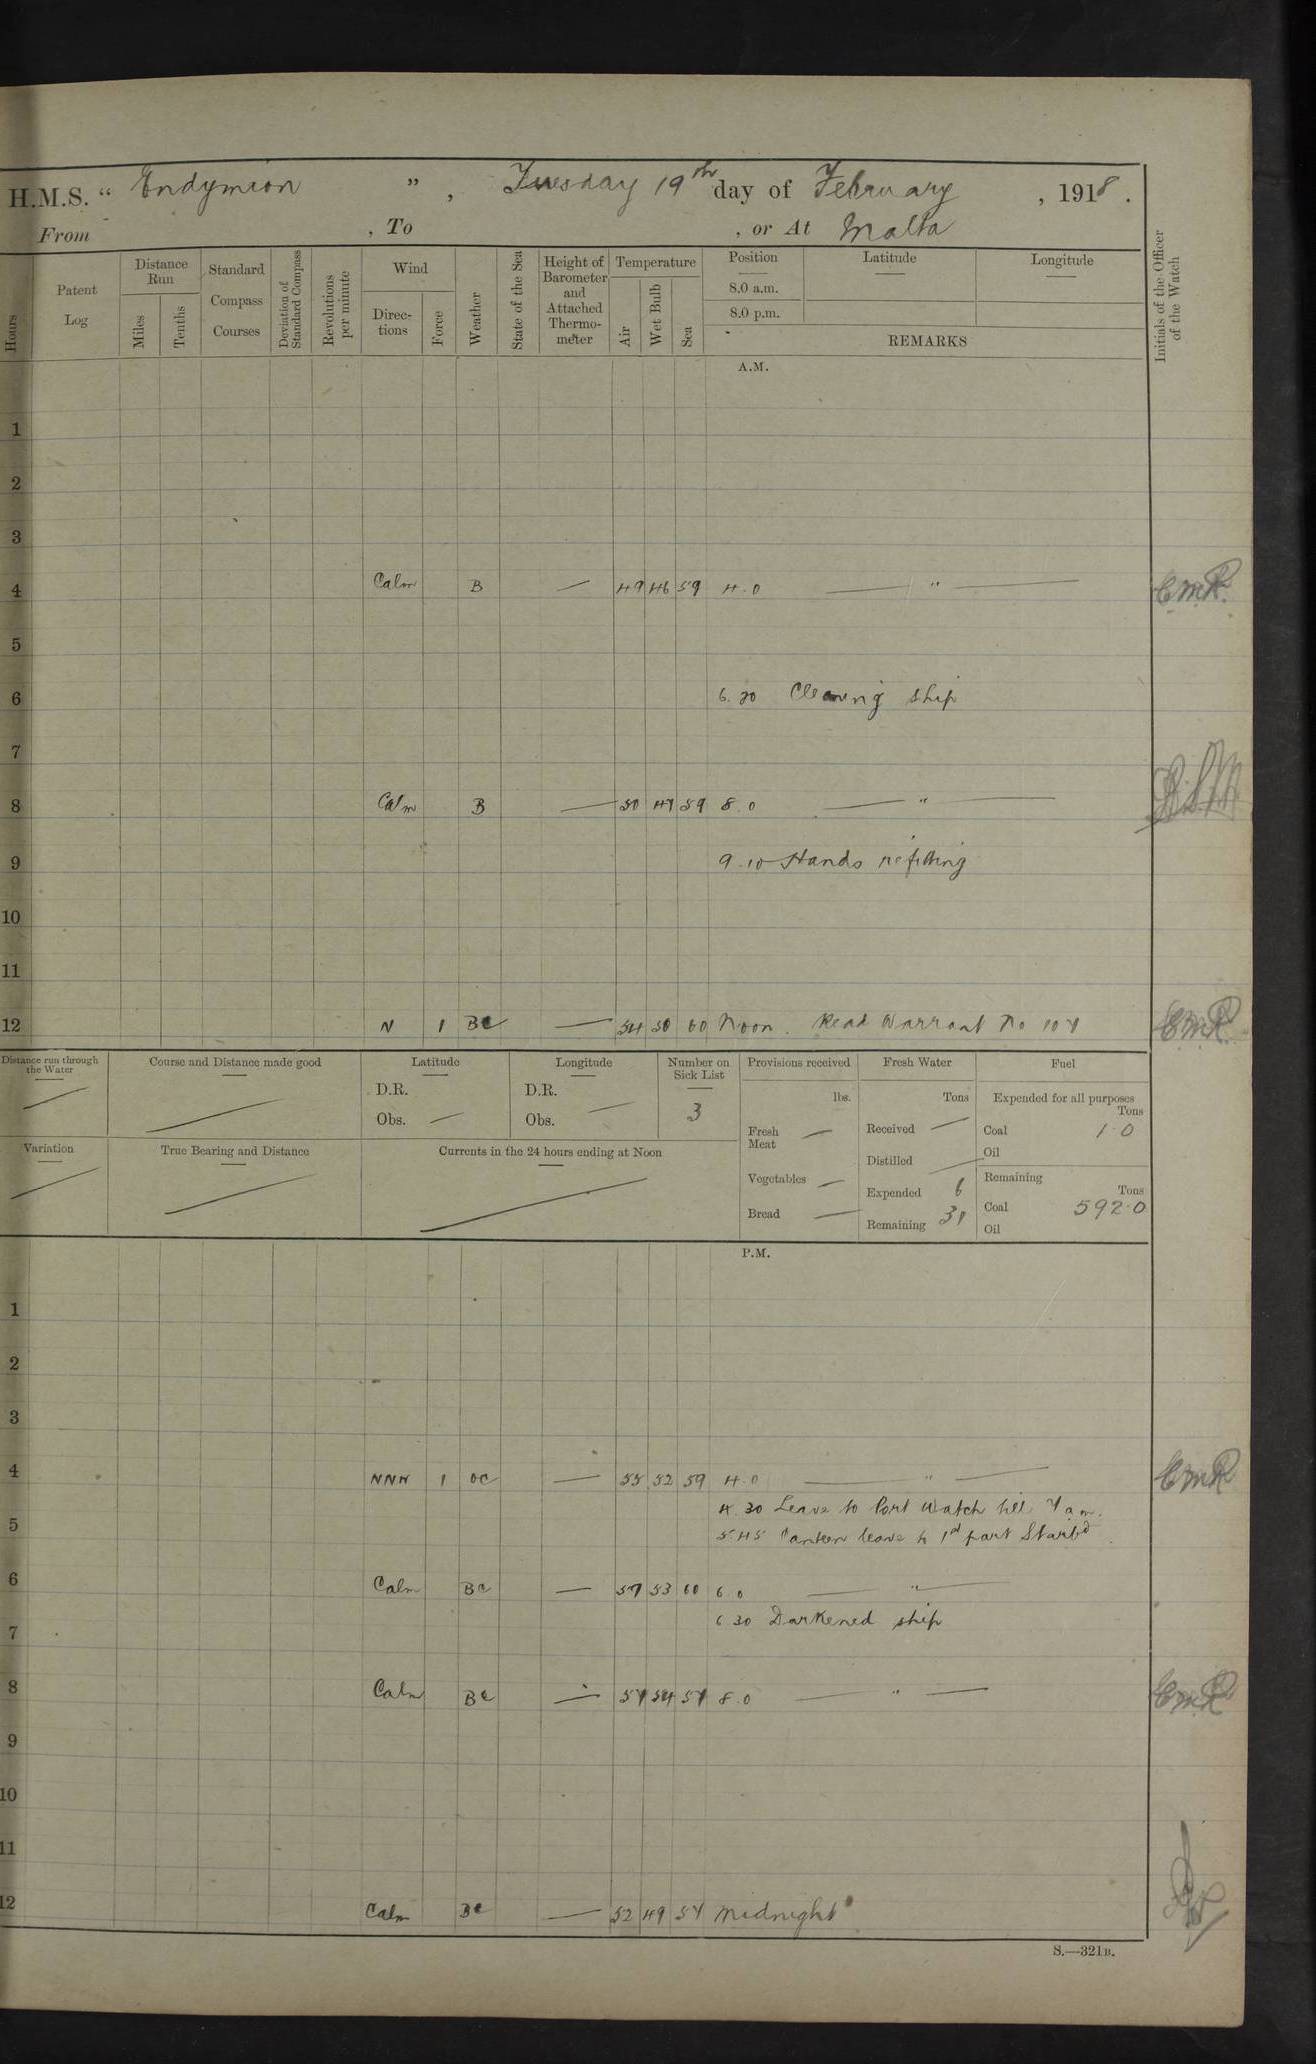 H.M.S. “ Endymion ” , Tuesday 19th day of February , 1918 .
From , To , or At Malta
Hours
Patent Log
Distance Run
Miles
Tenths
Standard Compass Courses
Deviation of Standard Compass
Revolutions per minute
Wind
Direc-tions
Force
Weather
State of the Sea
Height of Barometer and Attached Thermo-meter
Temperature
Air
Wet Bulb
Sea
Position
8.0 a.m.
8.0 p.m.
Latitude
Longitude
REMARKS
Initials of the Officer of the Watch
A.M.
1
2
3
4 Calm B — 49 46 59 4.0 — " — EMR.
5
6 6.30 Cleaning ship
7
8 Calm B — 50 47 59 8.0 — " —
9 9.10 Hands refitting
10
11
12 N 1 BC — 54 50 60 Noon. Read Warrant No 107 EMR.
Distance run through the Water
Course and Distance made good
Latitude
D.R.
Obs. —
Longitude
D.R.
Obs. —
Number on Sick List
3
Variation
True Bearing and Distance
Currents in the 24 hours ending at Noon
Provisions received
lbs.
Fresh Meat —
Vegetables —
Bread —
Fresh Water
Tons
Received —
Distilled —
Expended 6
Remaining 31
Fuel
Expended for all purposes
Tons
Coal 10
Oil
Remaining
Tons
Coal 592.0
Oil
P.M.
1
2
3
4 NNW 1 OC — 55 52 59 4.0 — " — EMR
4.30 Leave to Port Watch till 7 am.
5 5.45 Canteen leave to 1st part Starbd.
6 Calm BC — 57 53 60 6.0 — " —
6 30 Darkened ship
7
8 Calm BC — 57 54 57 8.0 — " — EMR
9
10
11
12 Calm BC — 52 49 57 Midnight
S.—321B.